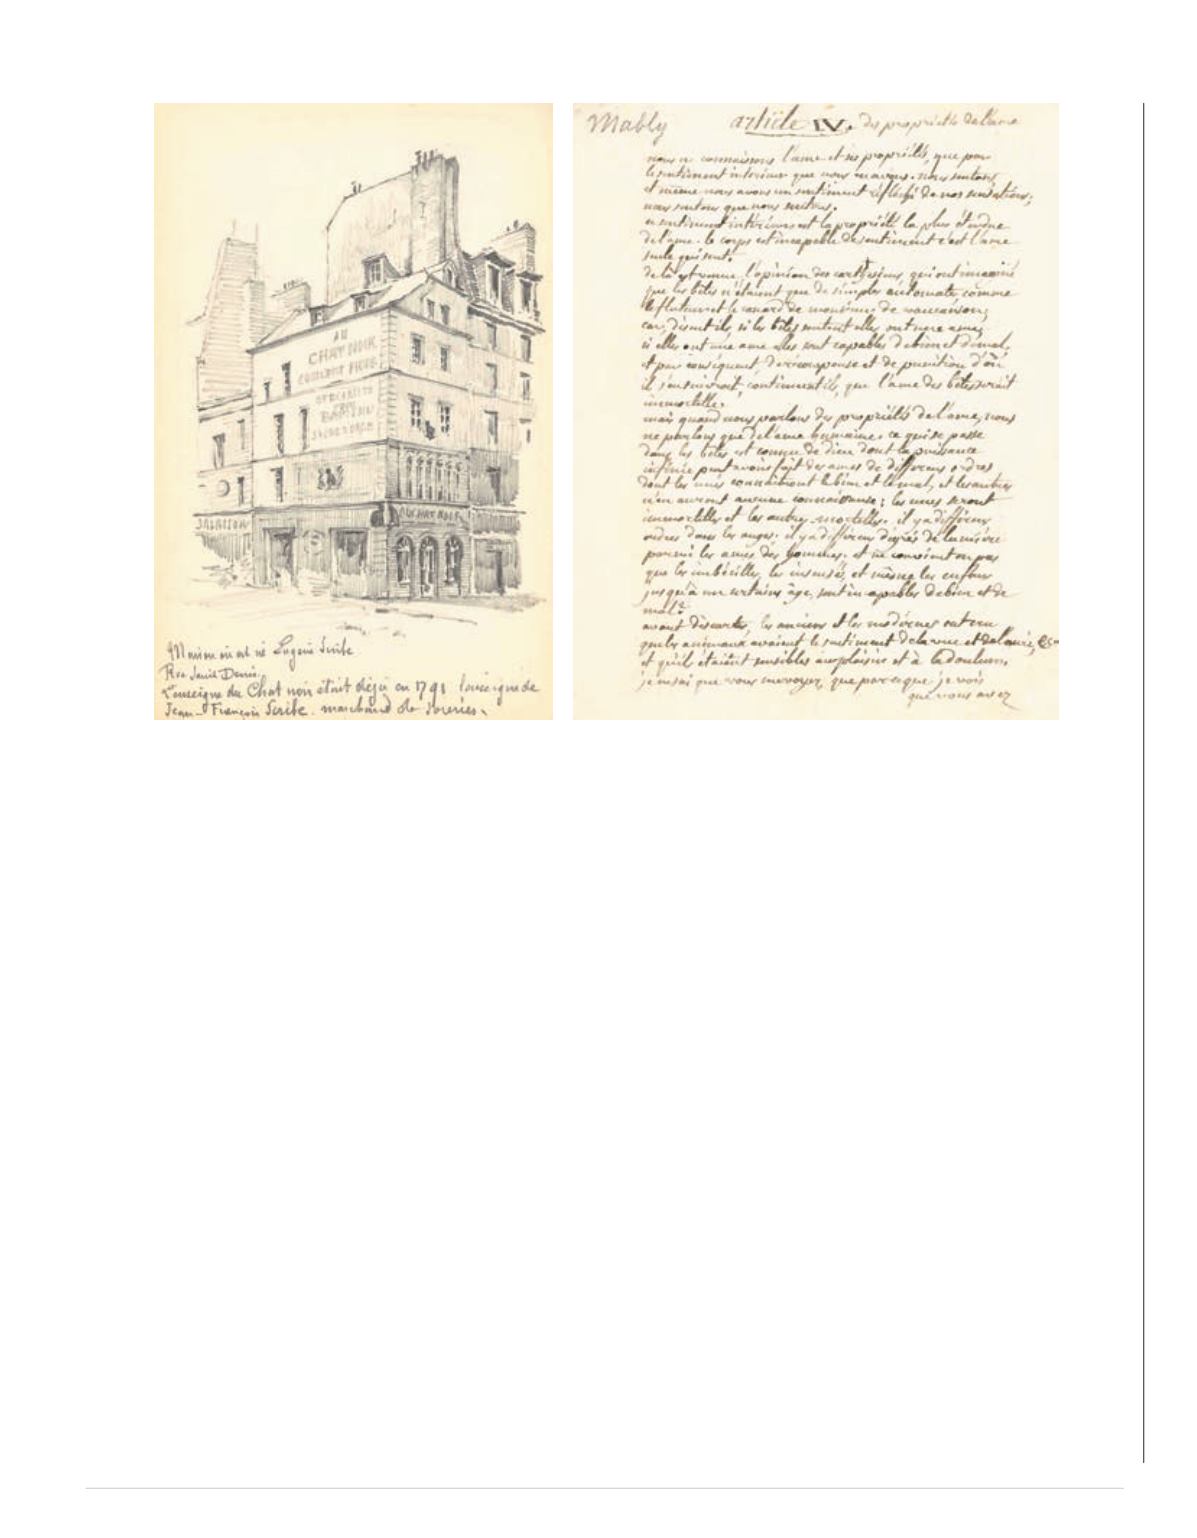 AU
CHAT NOIR
SALAISON
AU CHAT NOIR
Maison où est né Eugène Scribe
Rue Saint Denis.
L'enseigne du Chat noir était déjà en 1791 l'enseigne de
Jean-François Scribe. marchand de soieries.
Mably article IV. des propriétés de l'ame
nous ne connaissons l'ame et ses propriétés, que par
le sentiment intérieur que nous en avons. nous sentons,
et même nous avons un sentiment réfléchi de nos sensations;
nous sentons que nous sentons.
ce sentiment intérieur est la propriété la plus étendue
de l'ame. le corps est incapable de sentiment c'est l'ame
seule qui sent.
de là est venue l'opinion des cartésiens qui ont imaginé
que les bêtes n'étaient que de simples automates comme
le fluteur et le canard de monsieur de vaucanson;
car, disent ils, si les bêtes sentent elles ont une ame;
si elles ont une ame elles sont capables de bien et de mal,
et par conséquent, de récompense et de punition d'où
il s'ensuivroit, continuent ils, que l'ame des bêtes seroit
immortelle.
mais quand nous parlons des propriétés de l'ame, nous
ne parlons que de l'ame humaine. ce qui se passe
dans les bêtes est connu de dieu dont la puissance
infinie peut avoir fait des ames de différens ordres
dont les unes connaitront le bien et le mal, et les autres
n'en auront aucune connaissance; les unes seront
immortelles et les autres mortelles. il y a différens
ordres dans les anges. il y a différens degrés de lumière
parmi les ames des hommes. et ne convient on pas
que les imbécilles, les insensés, et même les enfans
jusqu'à un certain âge, sont incapables de bien et de
mal?
avant descartes, les anciens et les modernes ont cru
que les animaux avaient le sentiment de la vue et de l'ouie, &c
et qu'ils étaient sensibles au plaisir et à la douleur.
je ne sai que vous me voyez, que parce que je vois
que vous avez